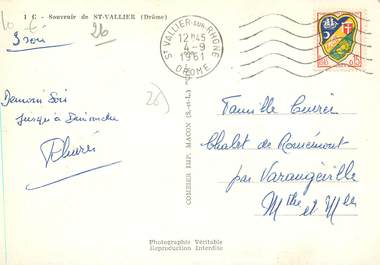 1 C - Souvenir de ST-VALLIER (Drôme)
10 €
26
3 voir
ST VALLIER-SUR-RHONE
12H45
4-9
1961
DROME
Demain Soir
jusqu'à Dimanche
26)
COMBIER IMP. MACON (S.-et-L.)
Famille Curien
Chalet de Romémont
par Varangéville
Mthe et Mlle
Photographie Véritable
Reproduction Interdite